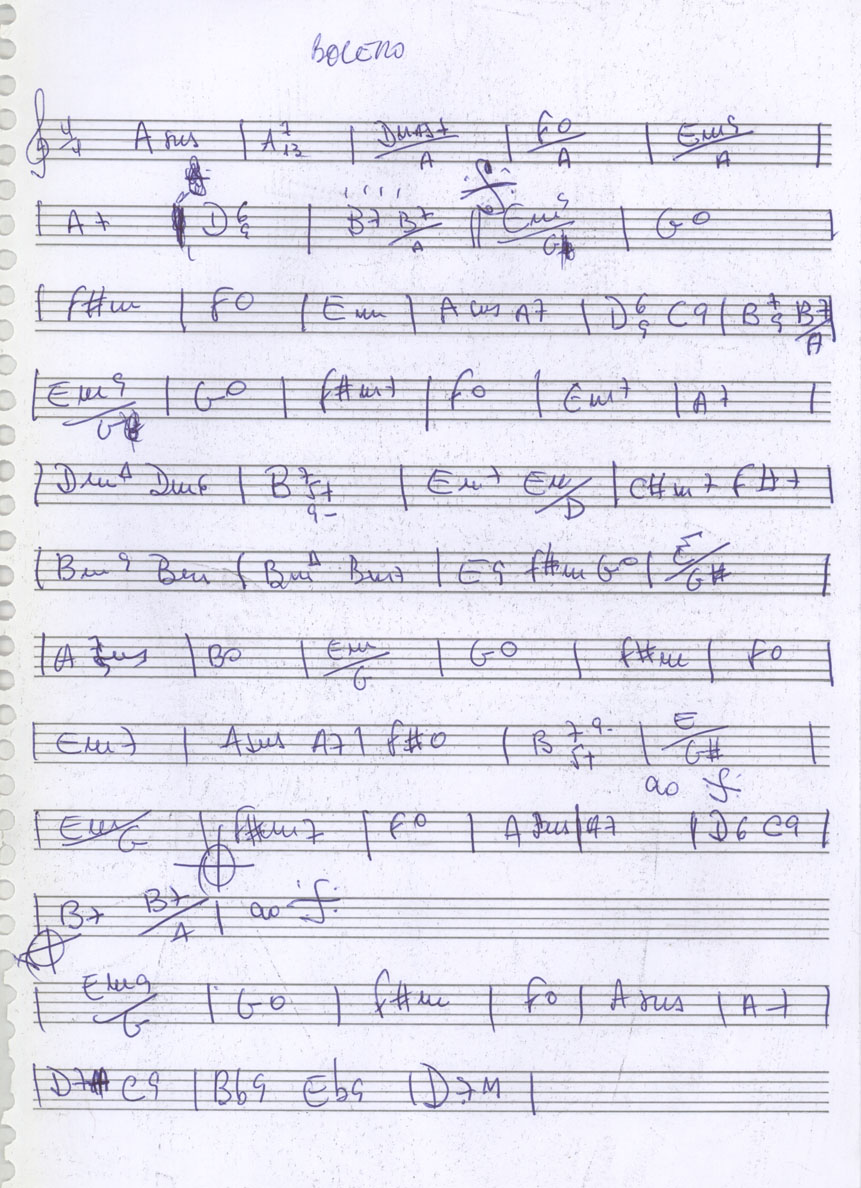 BOLERO
4/4 A sus | A 7 13 | Dm7+/A | Fo/A | Em9/A |
| A7 | D 6 9 | B7 B7/A || Em9/G | Go
| F#m | Fo | Em | A sus A7 | D 6 9 C9 | B 7 9 B7/A
| Em9/G | Go | F#m7 | Fo | Em7 | A7 |
| DmΔ Dm6 | B 7 5+ 9- | Em7 Em/D | C#m7 F#7 |
| Bm9 Bm | BmΔ Bm7 | E9 F#m Go | E/G# |
| A 7 sus | Bo | Em/G | Go | F#m | Fo
| Em7 | A sus A7 | F#o | B 7 9- 5+ | E/G# |
ao
| Em/G | F#m7 | Fo | A sus | A7 | D6 C9 |
| B7 B7/A | ao
| Em9/G | Go | F#m | Fo | A sus | A7 |
| D7 C9 | Bb9 Eb9 | D7M |